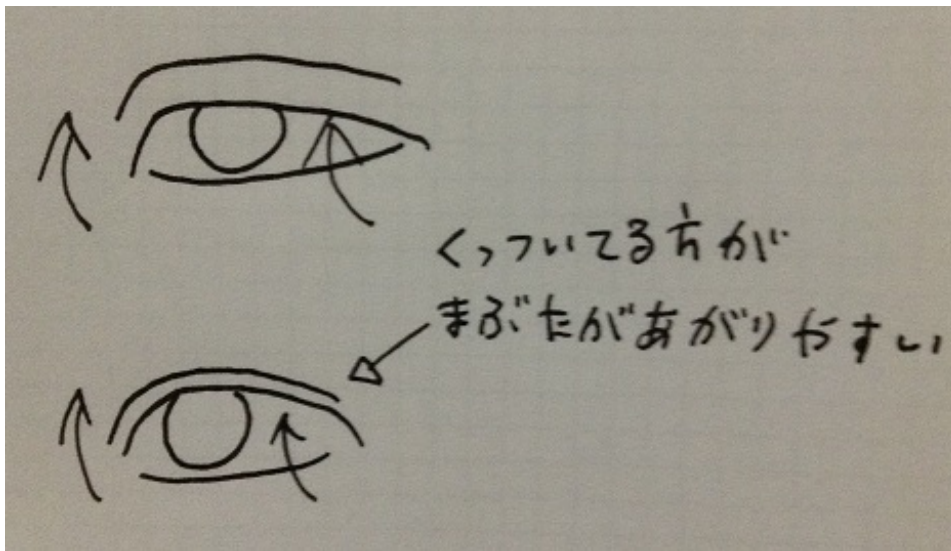 くっついてる方が
まぶたがあがりやすい